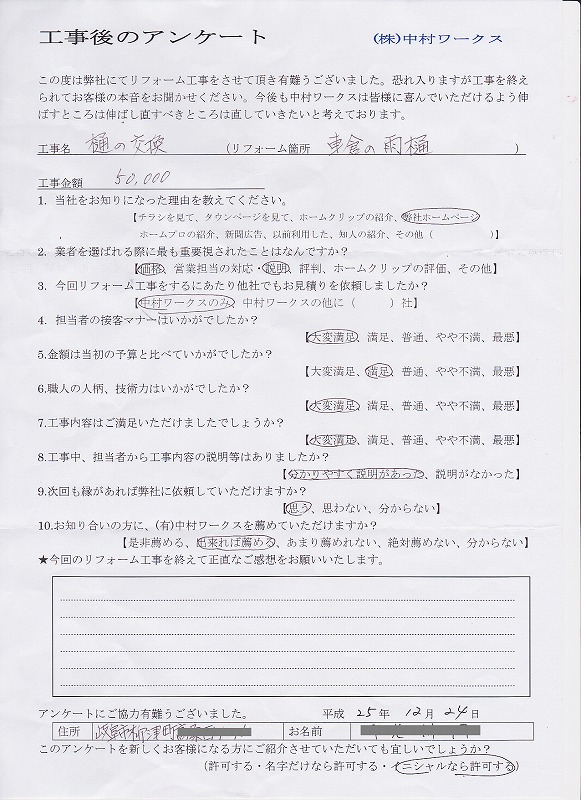 工事後のアンケート　(株)中村ワークス
この度は弊社にてリフォーム工事をさせて頂き有難うございました。恐れ入りますが工事を終え
られてお客様の本音をお聞かせください。今後も中村ワークスは皆様に喜んでいただけるよう伸
ばすところは伸ばし直すべきところは直していきたいと考えております。
工事名　樋の交換　(リフォーム箇所　車倉の雨樋　)
工事金額　50,000
1．当社をお知りになった理由を教えてください。
【チラシを見て、タウンページを見て、ホームクリップの紹介、弊社ホームページ
ホームプロの紹介、新聞広告、以前利用した、知人の紹介、その他（　　　）】
2．業者を選ばれる際に最も重要視されたことはなんですか？
【価格、営業担当の対応・説明、評判、ホームクリップの評価、その他】
3．今回リフォーム工事をするにあたり他社でもお見積りを依頼しましたか？
【中村ワークスのみ、中村ワークスの他に（　　　）社】
4．担当者の接客マナーはいかがでしたか？
【大変満足、満足、普通、やや不満、最悪】
5.金額は当初の予算と比べていかがでしたか？
【大変満足、満足、普通、やや不満、最悪】
6.職人の人柄、技術力はいかがでしたか？
【大変満足、満足、普通、やや不満、最悪】
7.工事内容はご満足いただけましたでしょうか？
【大変満足、満足、普通、やや不満、最悪】
8.工事中、担当者から工事内容の説明等はありましたか？
【分かりやすく説明があった、説明がなかった】
9.次回も縁があれば弊社に依頼していただけますか？
【思う、思わない、分からない】
10.お知り合いの方に、(有)中村ワークスを薦めていただけますか？
【是非薦める、出来れば薦める、あまり薦めれない、絶対薦めない、分からない】
★今回のリフォーム工事を終えて正直なご感想をお願いいたします。
アンケートにご協力有難うございました。　平成　25年　12月　24日
住所　岐阜市柳津町　お名前
このアンケートを新しくお客様になる方にご紹介させていただいても宜しいでしょうか？
（許可する・名字だけなら許可する・イニシャルなら許可する）